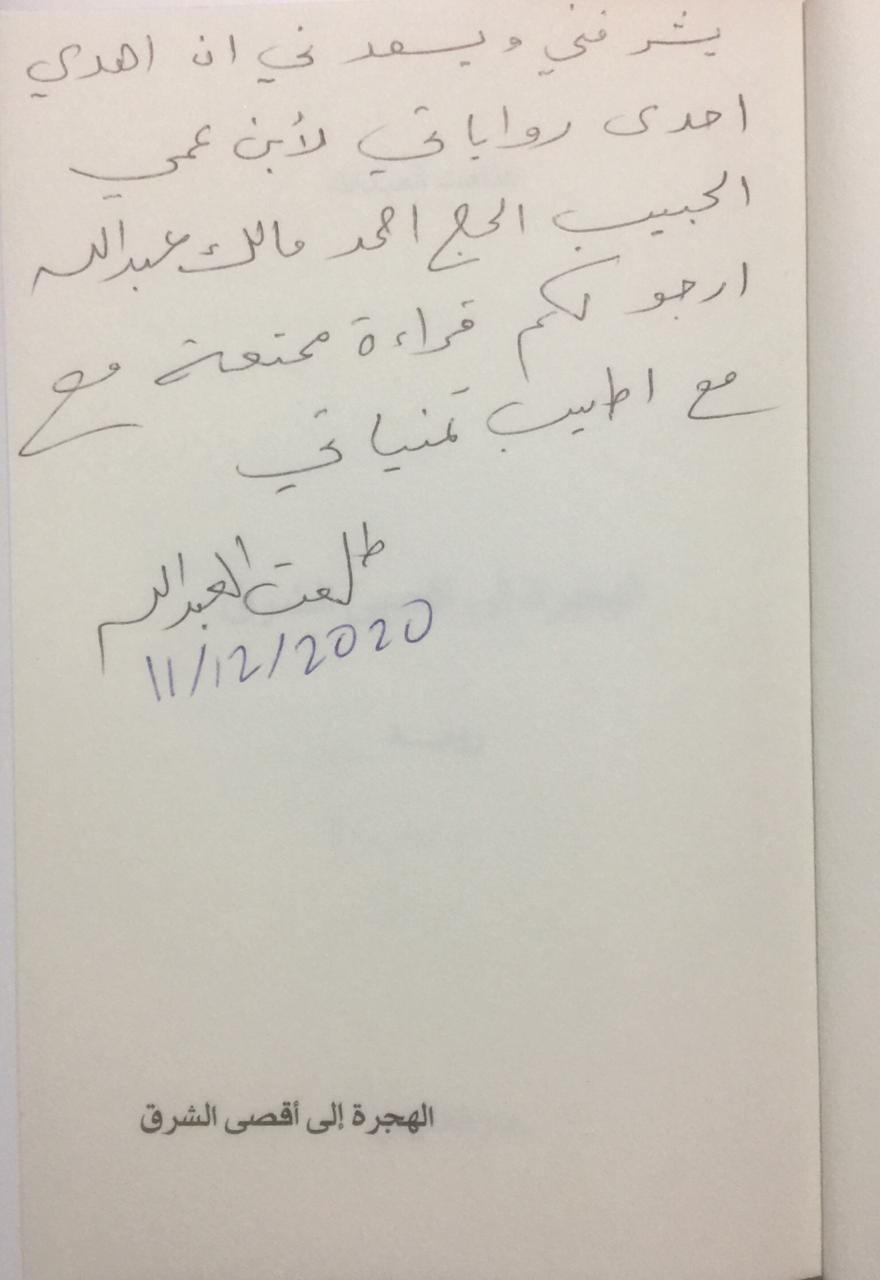 يشرفني ويسعدني ان اهدي
احدى رواياتي لأبن عمي
الحبيب الحج احمد مالك عبدالله
ارجو لكم قراءة ممتعة مع
مع اطيب تمنياتي
طلعت العبدالله
11/12/2020
الهجرة إلى أقصى الشرق